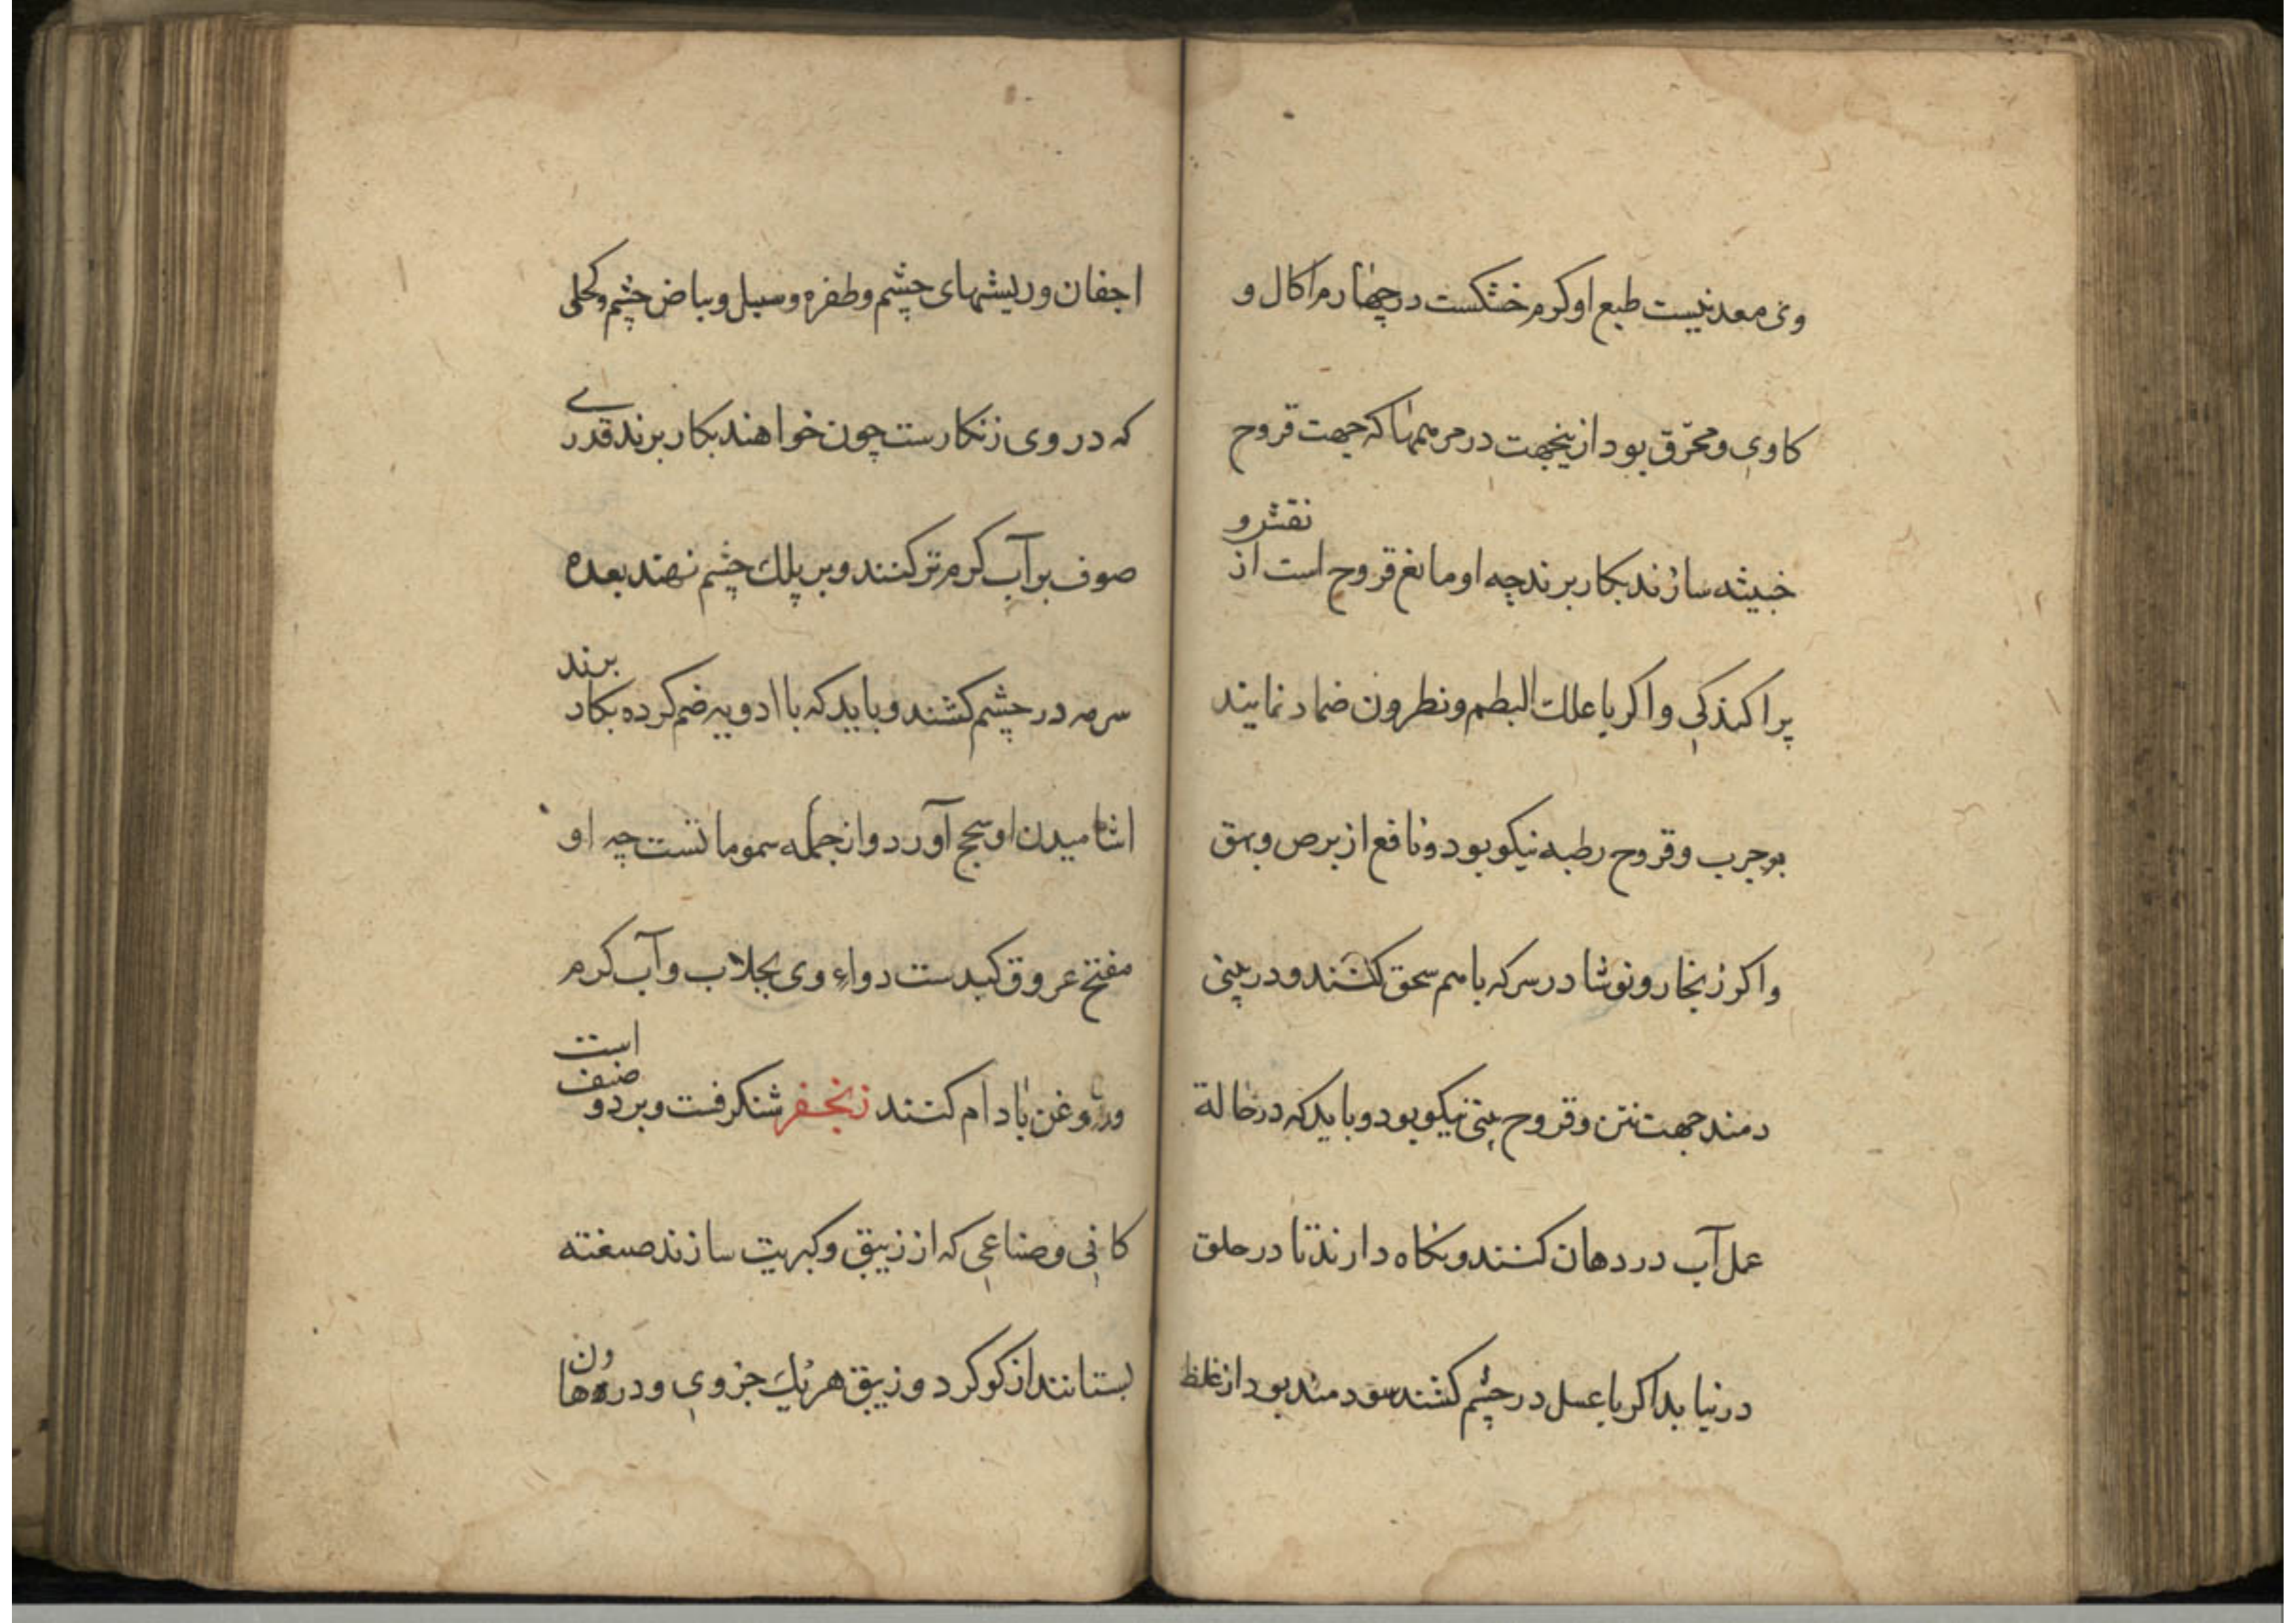 وی معدنیست طبع او کرم خشکست در چهارم اکال و
کاوی و محرّق بود ازینجهت در مرمهها که جهت قروح
خبیثه سازند بکار برند چه او مانع قروح است از نقش و
پراکندکی و اکر با علك البطم و نطرون ضماد نمایند
بر جرب و قروح رطبه نیکو بود و نافع از برص و بهق
و اکر زنجار و نوشادر سرکه باهم سحق کنند و در بینی
دمند جهت نتن و قروح بینی نیکو بود و باید که در حالة
عمل آب در دهان کنند و نکاه دارند تا در حلق
در نیاید اکر با عسل در چشم کشند سودمند بود از غلظ
اجفان و ریشهای چشم و طفره و سبل و بیاض چشم و کحلی
که در وی زنکارست چون خواهند بکار برند قدری
صوف بر آب کرم تر کنند و بر پلك چشم نهند بعده
سرمه در چشم کشند و باید که با ادویه ضم کرده بکار برند
اشامیدن او سحج آورد و از جمله سموماتست چه او
مفتح عروق کبدست دواء وی بجلاب و آب کرم
و روغن بادام کنند زنجفر شنکرفست و بر دو صنف است
کانی و صناعی که از زیبق و کبریت سازند صنعته
بستانند از کوکرد و زیبق هر یك جزوی و در